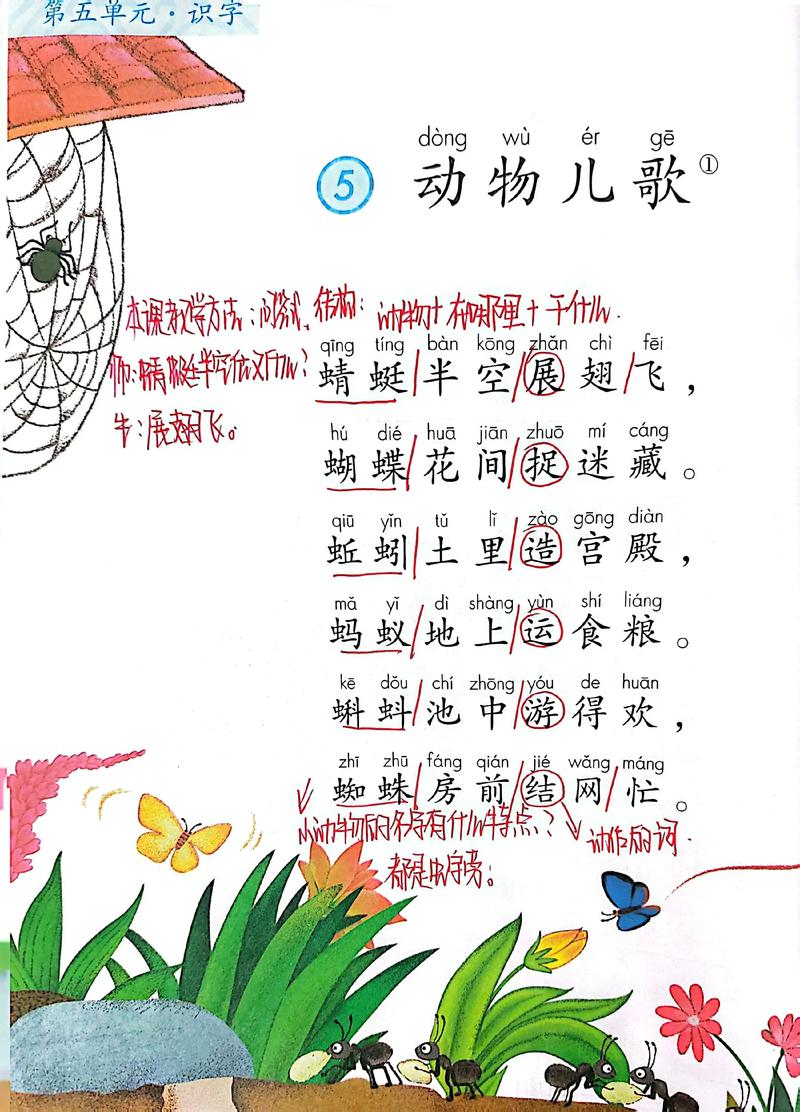 第五单元·识字
dòng wù ér gē
5 动物儿歌①
本课教学方法：问答式、结构：动物+在哪里+干什么.
师：蜻蜓半空在干什么？
生：展翅飞。
qīng tíng bàn kōng zhǎn chì fēi
蜻蜓半空展翅飞，
hú dié huā jiān zhuō mí cáng
蝴蝶花间捉迷藏。
qiū yǐn tǔ lǐ zào gōng diàn
蚯蚓土里造宫殿，
mǎ yǐ dì shàng yùn shí liáng
蚂蚁地上运食粮。
kē dǒu chí zhōng yóu de huān
蝌蚪池中游得欢，
zhī zhū fáng qián jié wǎng máng
蜘蛛房前结网忙。
小动物的名字有什么特点？
都是虫字旁。
动作的词.